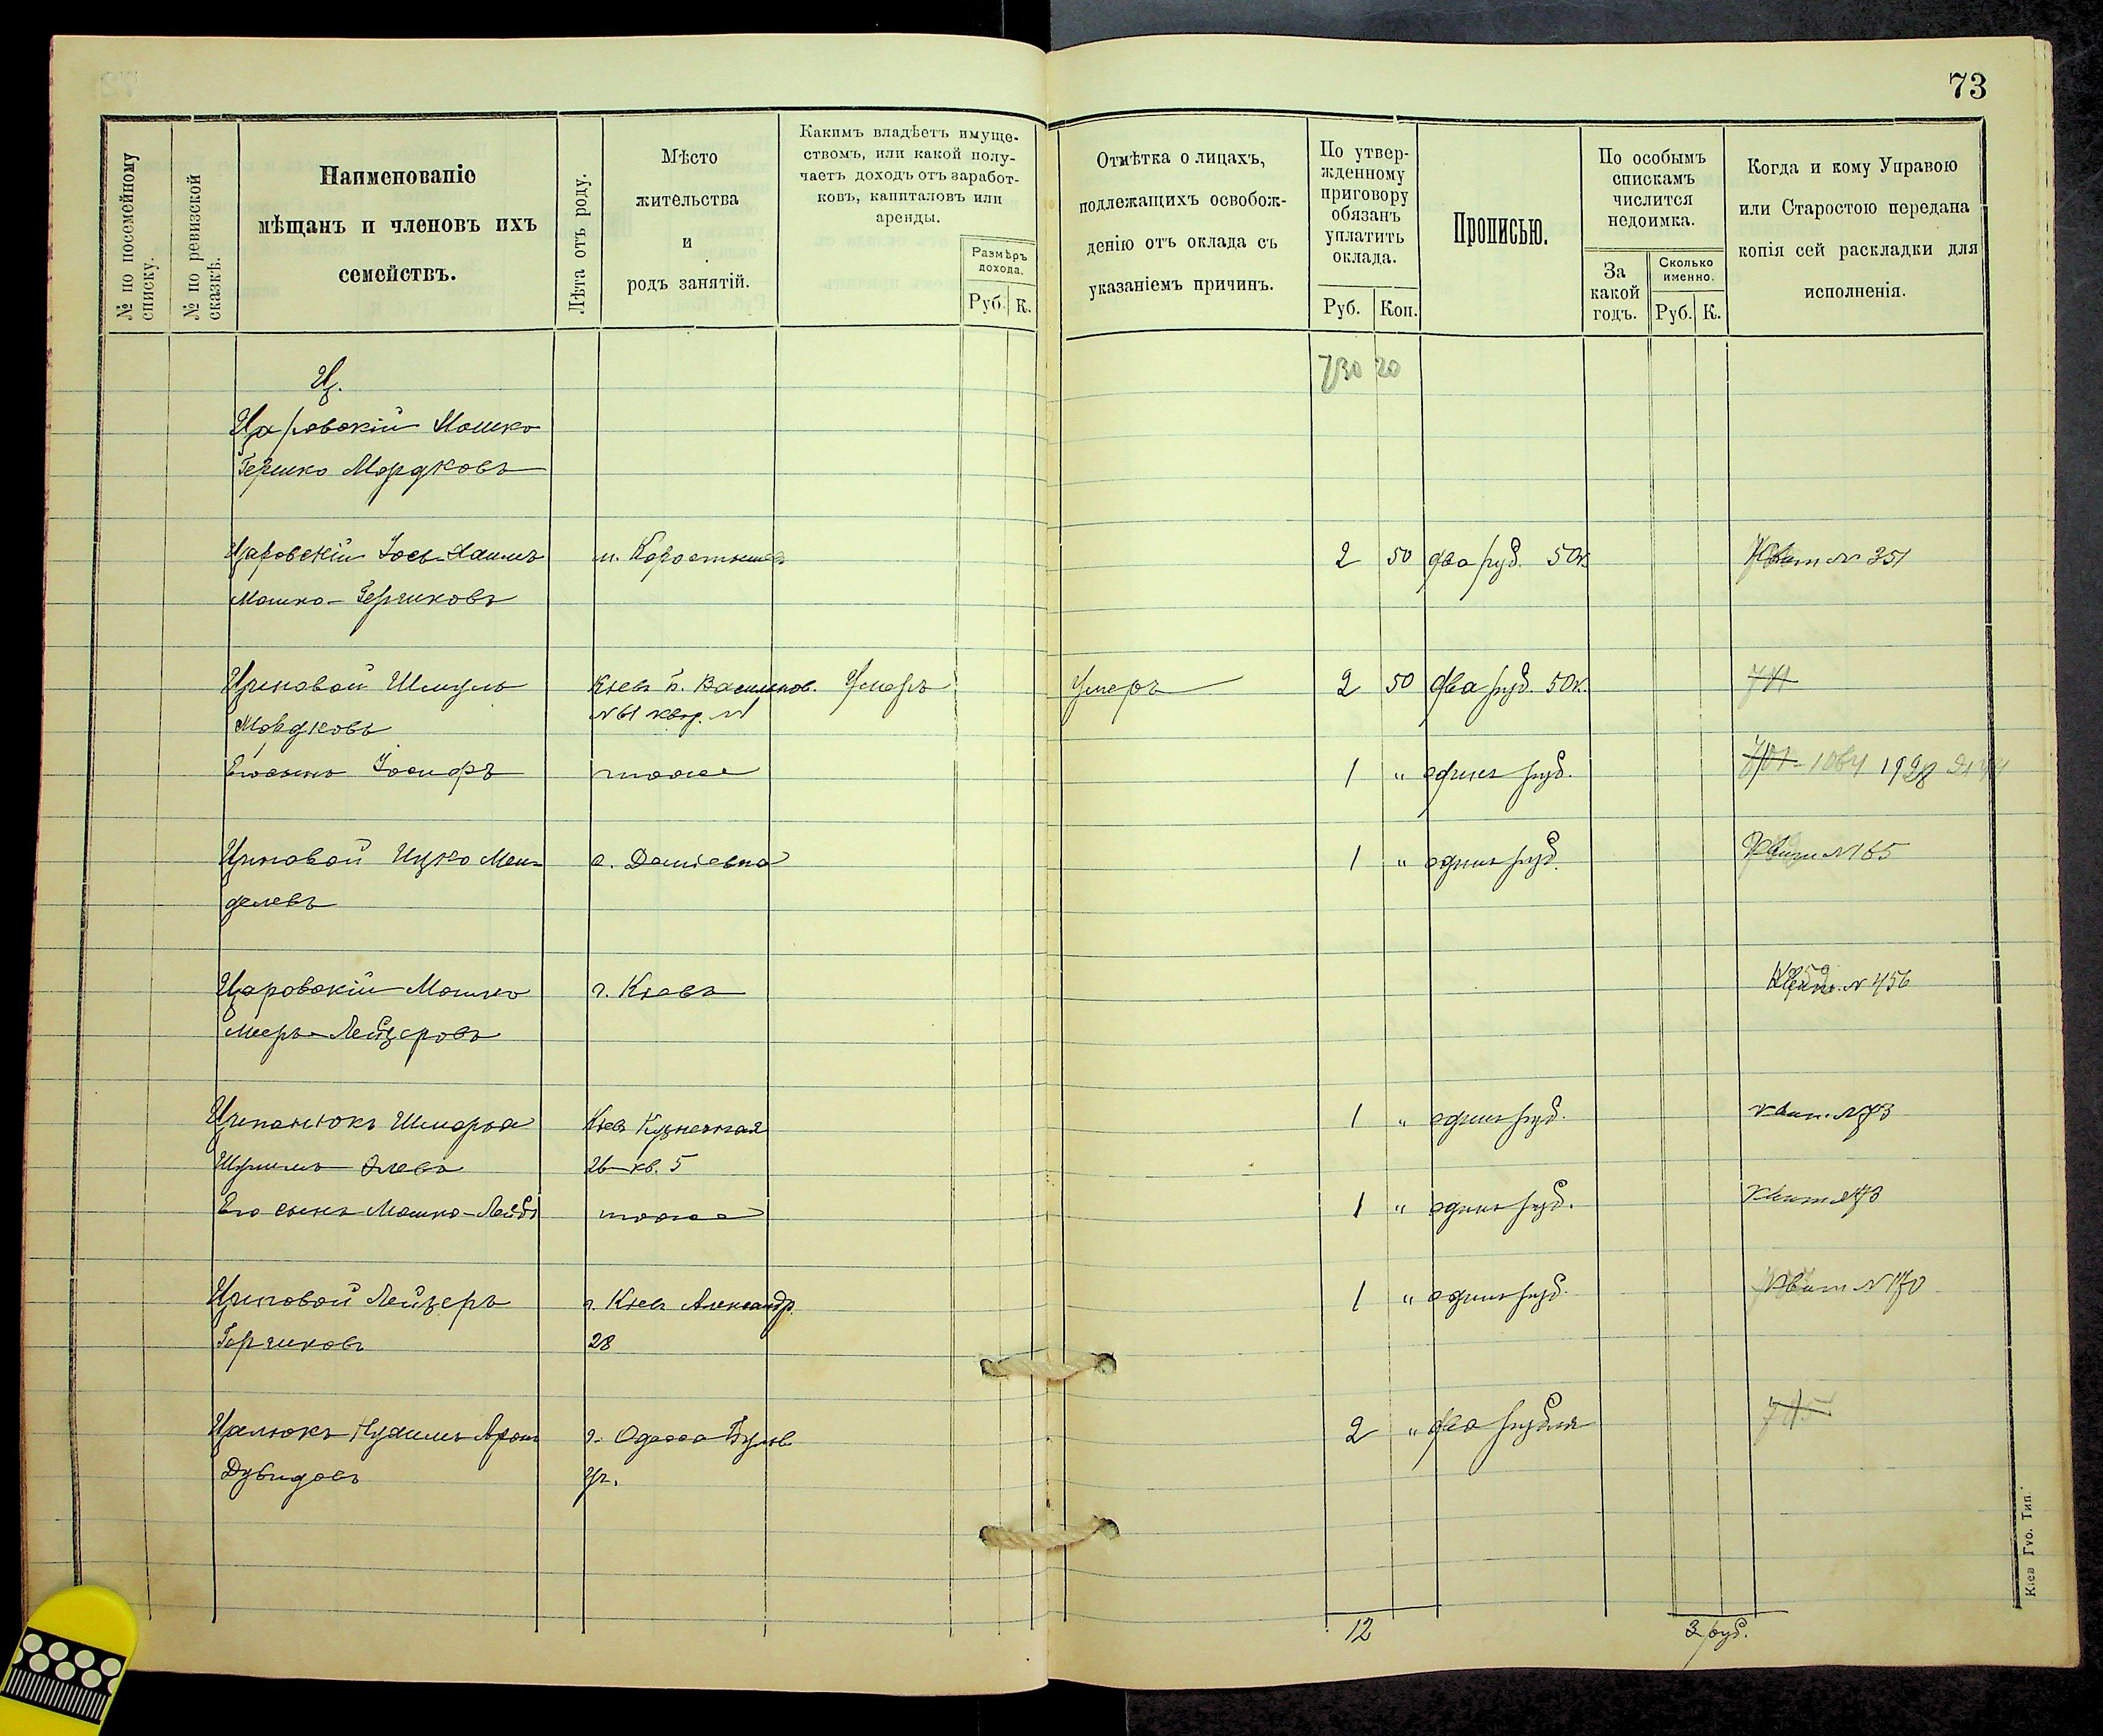 73
№ по посемейному списку.
№ по ревизской сказкѣ.
Наименованіе
мѣщанъ и членовъ ихъ
семействъ.
Лѣта отъ роду.
Мѣсто
жительства
и
родъ занятій.
Какимъ владѣетъ имуще-
ствомъ, или какой полу-
чаетъ доходъ отъ заработ-
ковъ, капиталовъ или
аренды.
Размѣръ
дохода.
Руб. К.
Отмѣтка о лицахъ,
подлежащихъ освобож-
денію отъ оклада съ
указаніемъ причинъ.
По утвер-
жденному
приговору
обязанъ
уплатить
оклада.
Руб. Коп.
Прописью.
По особымъ
спискамъ
числится
недоимка.
За
какой
годъ.
Сколько
именно.
Руб. К.
Когда и кому Управою
или Старостою передана
копія сей раскладки для
исполненія.
Ц.
730 20
Царовскій Мошко
Гершко Мордковъ
Царовскій Іось-Хаимъ м. Коростышев 2 50 два руб. 50к. Квит № 351
Мошко-Гершковъ
Циповой Шмуль Кіевъ Б. Васильков. Умеръ Умеръ 2 50 два руб. 50к. 741
Мордковъ № 61 квар. №1
Его сынъ Іосифъ тоже 1 " одинъ руб.
Циповой Ицко Мен- с. Даніевка 1 " одинъ руб. Квит № 165
делевъ
Царовскій Мошко г. Кіевъ Квит. № 456
Меер-Лейзеровъ
Ципанюкъ Шмарья Кіевъ Кузнечная 1 " одинъ руб. Квит. № 73
26 кв. 5
Его сынъ Мошко-Лейб тоже 1 " одинъ руб. Квит № 73
Циповой Лейзеръ г. Кіевъ Александр. 1 " одинъ руб. Квит № 170
Герчиковъ 28
Цалюкъ Нухимъ Арон г. Одесса 2 " два рубля 745
Дувидовъ
12 3 руб.
Кіев Губ. Тип.